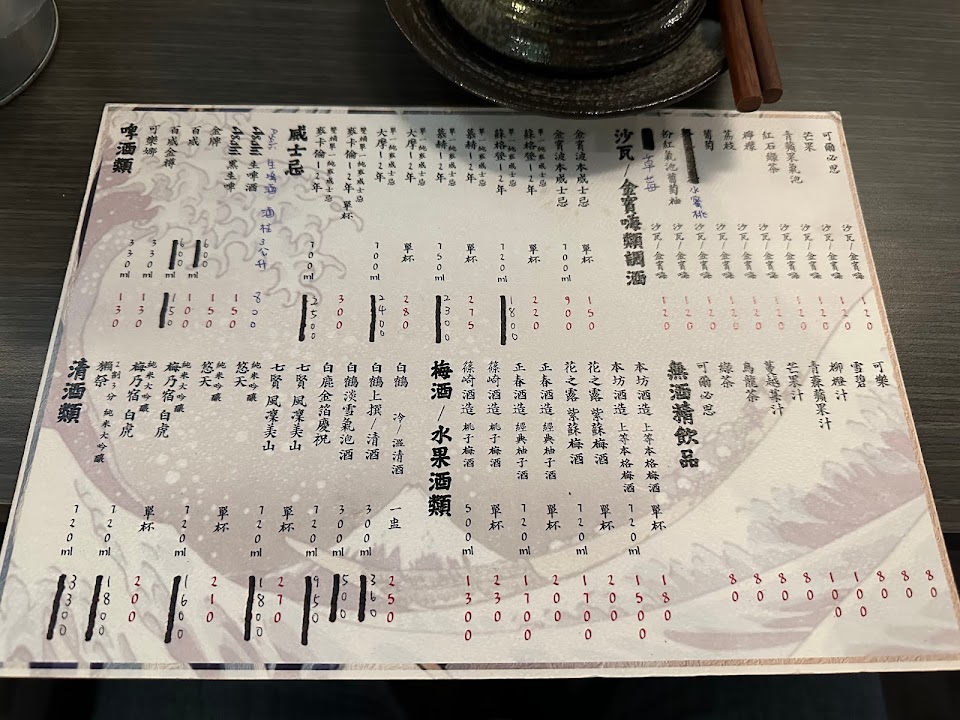 啤酒類
可樂娜 330ml 130
百威金樽 330ml 130
百威 600 150
金牌 600 100
Asahi 黑生啤 150
Asahi 生啤酒 150
生啤酒 酒柱3公升 800
威士忌
麥卡倫12年 雙桶單一純麥威士忌 700ml 2500
麥卡倫12年 雙桶單一純麥威士忌 單杯 300
大摩12年 單一純麥威士忌 700ml 2400
大摩12年 單一純麥威士忌 單杯 280
慕赫12年 單一純麥威士忌 750ml 2300
慕赫12年 單一純麥威士忌 275
蘇格登12年 單一純麥威士忌 720ml 1800
蘇格登12年 單一純麥威士忌 單杯 220
金賓波本威士忌 700ml 900
金賓波本威士忌 單杯 150
沙瓦/金賓嗨類調酒
草莓
粉紅氣泡葡萄柚 沙瓦/金賓嗨 120
水蜜桃 沙瓦/金賓嗨 120
葡萄 沙瓦/金賓嗨 120
荔枝 沙瓦/金賓嗨 120
檸檬 沙瓦/金賓嗨 120
紅石綠茶 沙瓦/金賓嗨 120
青蘋果氣泡 沙瓦/金賓嗨 120
芒果 沙瓦/金賓嗨 120
可爾必思 沙瓦/金賓嗨 120
清酒類
獺祭 2割3分 純米大吟釀 720ml 3300
梅乃宿 白虎 純米大吟釀 720ml 1800
梅乃宿 白虎 純米大吟釀 單杯 200
悠天 純米吟釀 720ml 1600
悠天 純米吟釀 單杯 210
七賢 風凜美山 720ml 1800
七賢 風凜美山 單杯 270
白鹿金箔慶祝 720ml 950
白鶴淡雪氣泡酒 300ml 500
白鶴上撰/清酒 300ml 360
白鶴 冷/溫清酒 一盅 250
梅酒/水果酒類
篠崎酒造 桃子梅酒 500ml 1300
篠崎酒造 桃子梅酒 單杯 230
正春酒造 經典柚子酒 720ml 1700
正春酒造 經典柚子酒 單杯 200
花之露 紫蘇梅酒 720ml 1700
花之露 紫蘇梅酒 單杯 200
本坊酒造 上等本格梅酒 720ml 1500
本坊酒造 上等本格梅酒 單杯 180
無酒精飲品
可爾必思 80
綠茶 80
烏龍茶 80
蔓越莓汁 80
芒果汁 100
青森蘋果汁 100
柳橙汁 80
雪碧 80
可樂 80